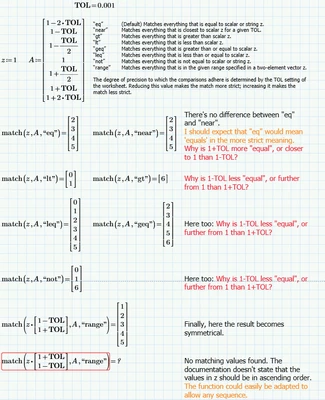 TOL=0.001
1−2·TOL
1−TOL
1−TOL/2
z:=1 A:= 1
1+TOL/2
1+TOL
1+2·TOL
"eq" (Default) Matches everything that is equal to scalar or string z.
"near" Matches everything that is closest to scalar z for a given TOL.
"gt" Matches everything that is greater than scalar z.
"lt" Matches everything that is less than scalar z.
"geq" Matches everything that is greater than or equal to scalar z.
"leq" Matches everything that is less than or equal to scalar z.
"not" Matches everything that is not equal to scalar or string z.
"range" Matches everything that is in the given range specified in a two-element vector z.
The degree of precision to which the comparisons adhere is determined by the TOL setting
of the worksheet. Reducing this value makes the match more strict; increasing it makes the
match less strict.
match(z,A,"eq")=[2 3 4 5] match(z,A,"near")=[2 3 4 5]
There's no difference between "eq"
and "near".
I should expect that "eq" would mean
'equals' in the more strict meaning.
Why is 1+TOL more "equal", or closer
to 1 than 1-TOL?
match(z,A,"lt")=[0 1] match(z,A,"gt")=[6]
Why is 1-TOL less "equal", or further
from 1 than 1+TOL?
match(z,A,"leq")=[0 1 2 3 4 5] match(z,A,"geq")=[2 3 4 5 6]
Here too: Why is 1-TOL less "equal", or
further from 1 than 1+TOL?
match(z,A,"not")=[0 1 6]
Here too: Why is 1-TOL less "equal", or
further from 1 than 1+TOL?
match(z·[1−TOL 1+TOL],A,"range")=[1 2 3 4 5]
Finally, here the result becomes
symmetrical.
match(z·[1+TOL 1−TOL],A,"range")=?
No matching values found. The
documentation doesn't state that the
values in z should be in ascending order.
The function could easily be adapted to
allow any sequence.